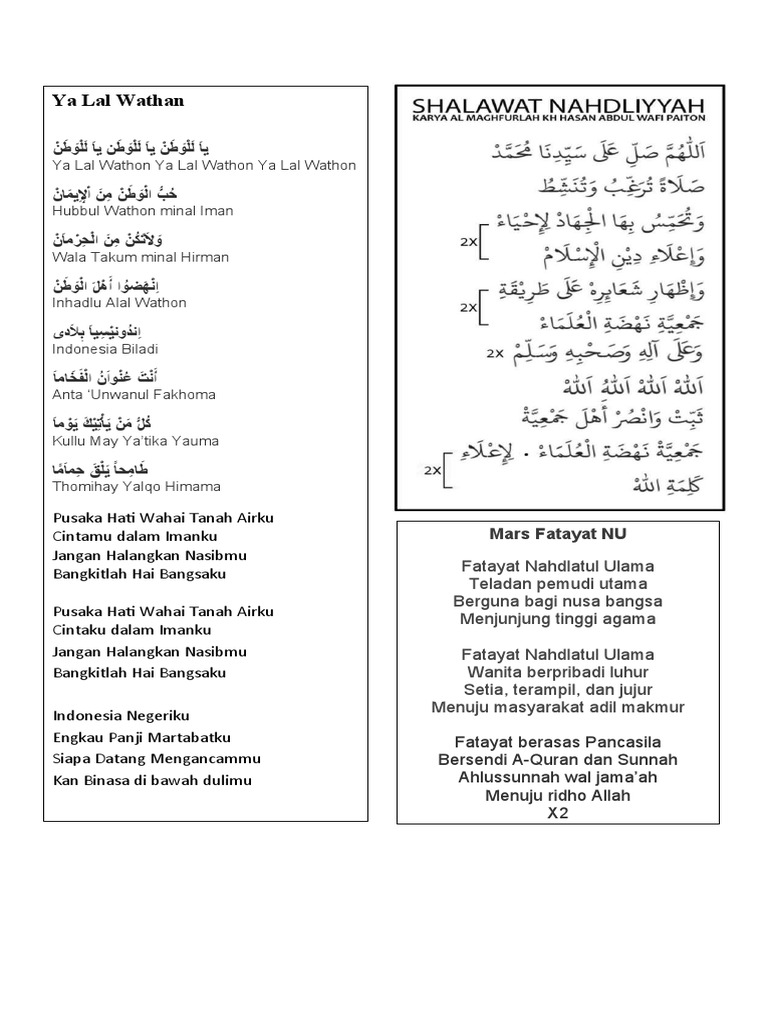 Ya Lal Wathan
ياَ لَلْوَطَنْ ياَ لَلْوَطَن ياَ لَلْوَطَنْ
Ya Lal Wathon Ya Lal Wathon Ya Lal Wathon
حُبُّ الْوَطَنْ مِنَ اْلإِيمَانْ
Hubbul Wathon minal Iman
وَلاَتَكُنْ مِنَ الْحِرْماَنْ
Wala Takum minal Hirman
اِنْهَضُوْا أَهْلَ الْوَطَنْ
Inhadlu Alal Wathon
اِندُونيْسِياَ بِلاَدى
Indonesia Biladi
أَنْتَ عُنْواَنُ الْفَخَاماَ
Anta ‘Unwanul Fakhoma
كُلُّ مَنْ يَأْتِيْكَ يَوْماَ
Kullu May Ya’tika Yauma
طَامِحاً يَلْقَ حِماَمًا
Thomihay Yalqo Himama
Pusaka Hati Wahai Tanah Airku
Cintamu dalam Imanku
Jangan Halangkan Nasibmu
Bangkitlah Hai Bangsaku
Pusaka Hati Wahai Tanah Airku
Cintaku dalam Imanku
Jangan Halangkan Nasibmu
Bangkitlah Hai Bangsaku
Indonesia Negeriku
Engkau Panji Martabatku
Siapa Datang Mengancammu
Kan Binasa di bawah dulimu
SHALAWAT NAHDLIYYAH
KARYA AL MAGHFURLAH KH HASAN ABDUL WAFI PAITON
اَللّٰهُمَّ صَلِّ عَلَى سَيِّدِنَا مُحَمَّدْ
صَلَاةً تُرَغِّبُ وَتُنَشِّطُ
وَتُحَمِّسُ بِهَا الْجِهَادْ لِإِحْيَاءْ
2x
وَإِعْلَاءِ دِيْنِ الْإِسْلَامْ
وَإِظْهَارِ شَعَايِرِهْ عَلَى طَرِيْقَةِ
2x
جَمْعِيَّةِ نَهْضَةِ الْعُلَمَاءْ
2x وَعَلَى آلِهِ وَصَحْبِهِ وَسَلِّمْ
اَللهْ اَللهْ اَللهُ اَللهْ
ثَبِّتْ وَانْصُرْ أَهْلَ جَمْعِيَّةْ
جَمْعِيَّةْ نَهْضَةِ الْعُلَمَاءْ . لِإِعْلَاءِ
2x
كَلِمَةِ اللهْ
Mars Fatayat NU
Fatayat Nahdlatul Ulama
Teladan pemudi utama
Berguna bagi nusa bangsa
Menjunjung tinggi agama
Fatayat Nahdlatul Ulama
Wanita berpribadi luhur
Setia, terampil, dan jujur
Menuju masyarakat adil makmur
Fatayat berasas Pancasila
Bersendi A-Quran dan Sunnah
Ahlussunnah wal jama’ah
Menuju ridho Allah
X2